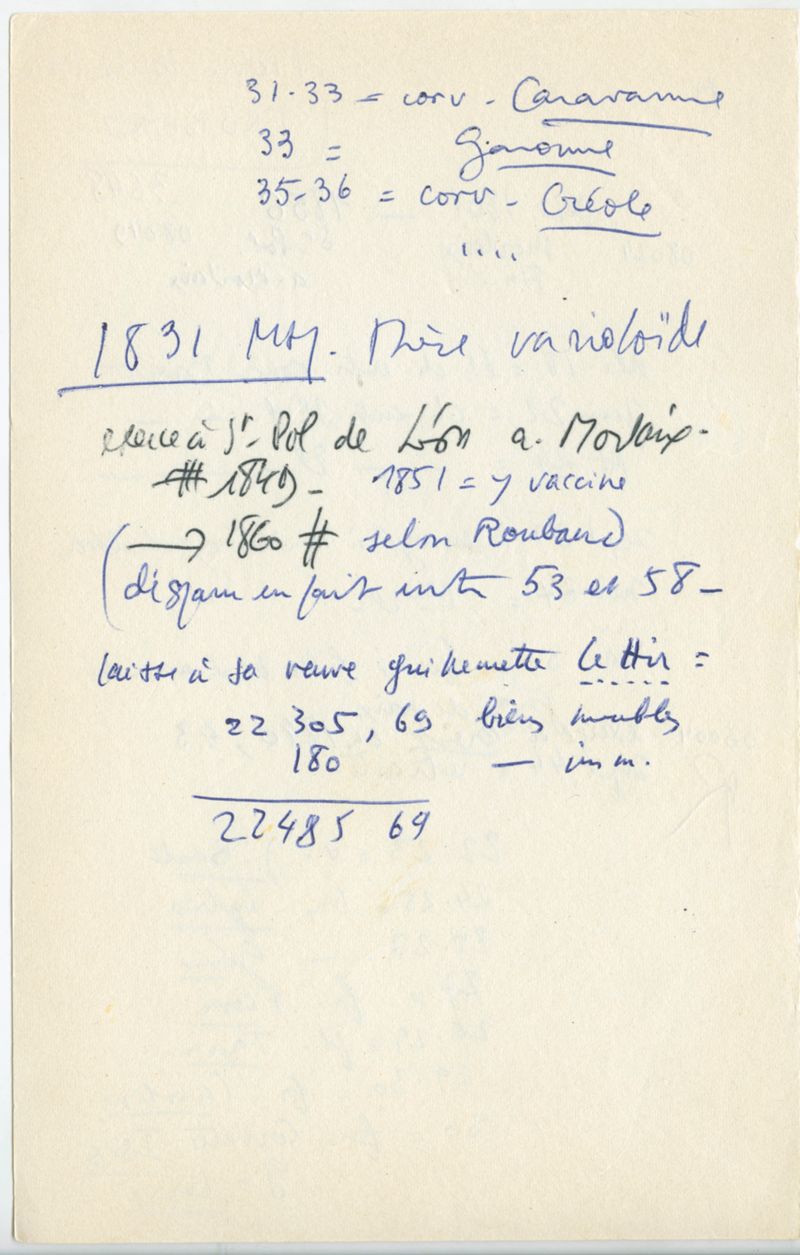 31-33 = corv - Caravanne
33 = Garonne
35-36 = corv - Créole
....
1831 Thèse varioloïde
exerce à St-Pol de Léon a. Morlaix-
# 1849 - 1851 = y vaccine
(→ 1860 # selon Roubaud)
(disparu en fait entre 53 et 58 -
laisse à sa veuve guillemette Le Hir =
22 305, 69 biens meubles
180 — imm.
22485 69